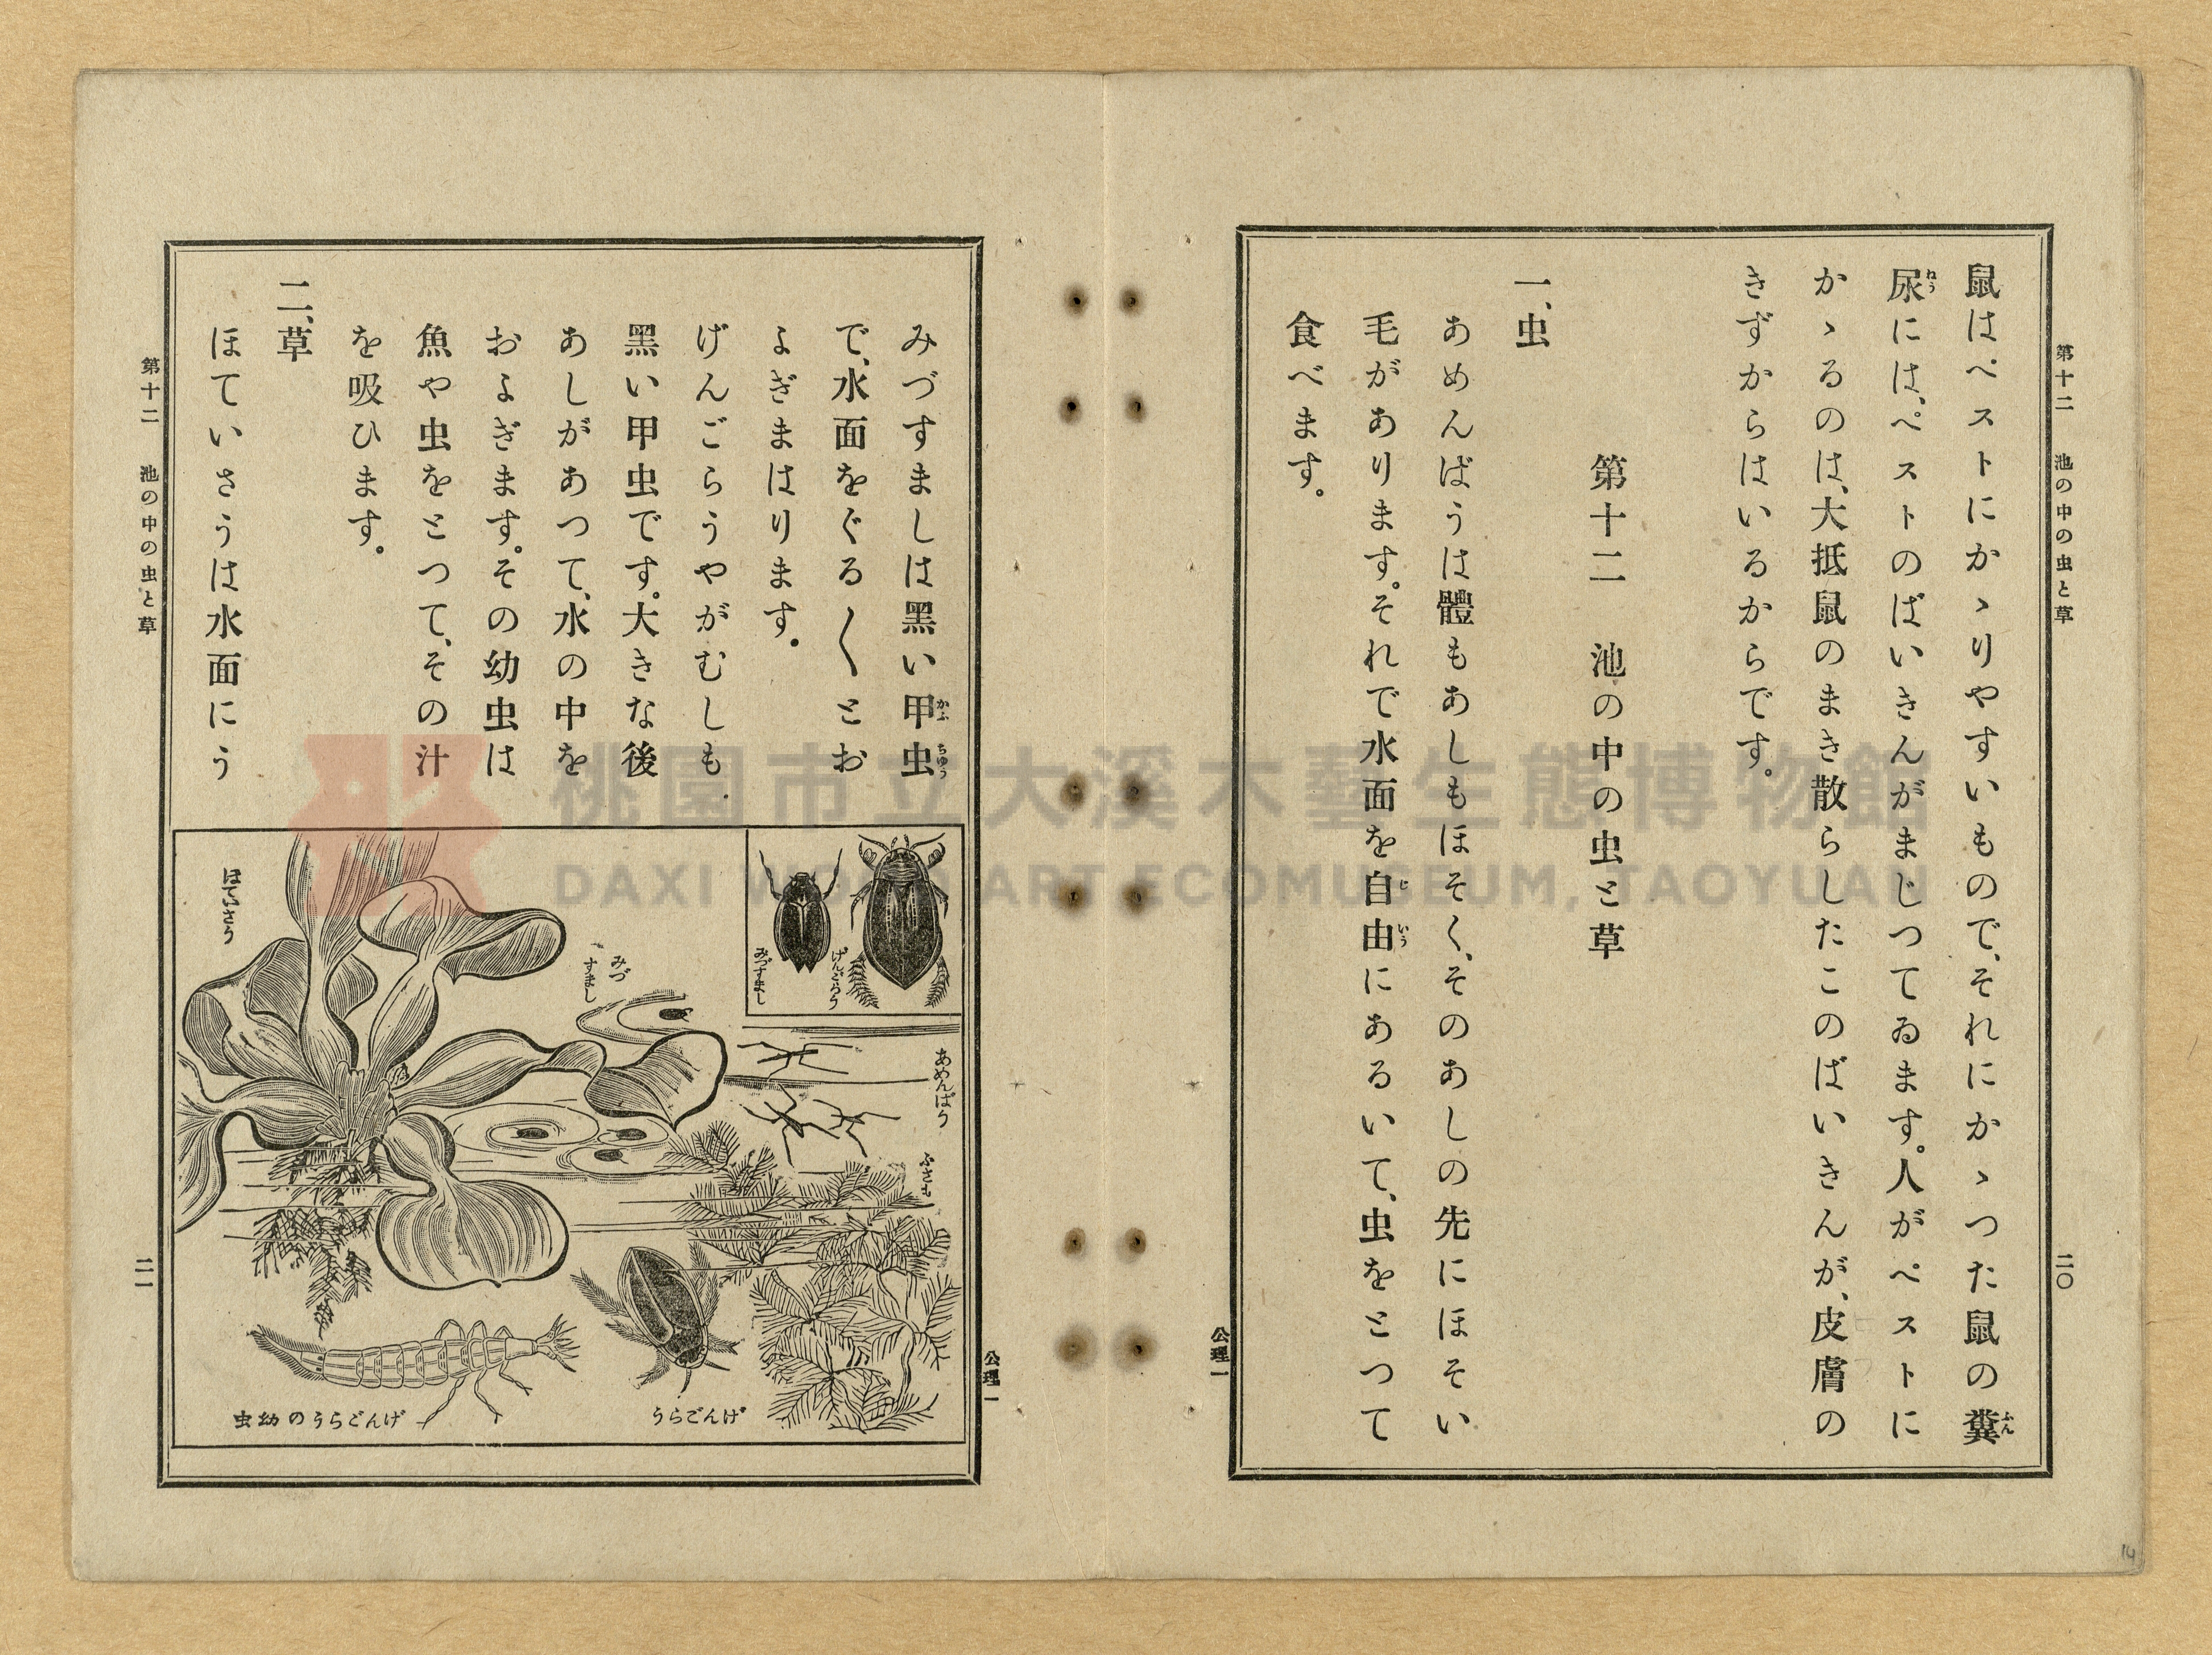 第十二 池の中の虫と草
二〇
鼠はペストにかゝりやすいもので、それにかゝつた鼠の糞
尿には、ペストのばいきんがまじつてゐます。人がペストに
かゝるのは、大抵鼠のまき散らしたこのばいきんが、皮膚の
きずからはいるからです。
第十二 池の中の虫と草
一、虫
あめんばうは體もあしもほそく、そのあしの先にほそい
毛があります。それで水面を自由にあるいて、虫をとつて
食べます。
公理一
公理一
みづすましは黑い甲虫
で、水面をぐる〱とお
よぎまはります。
げんごらうやがむしも
黑い甲虫です。大きな後
あしがあつて、水の中を
およぎます。その幼虫は
魚や虫をとつて、その汁
を吸ひます。
二、草
ほていさうは水面にう
げんごらう
みづすまし
あめんばう
ふさも
みづ
すまし
ほていさう
げんごらう
げんごらうの幼虫
第十二 池の中の虫と草
二一
桃園市立大溪木藝生態博物館
DAXI WOOD ART ECOMUSEUM, TAOYUAN
14